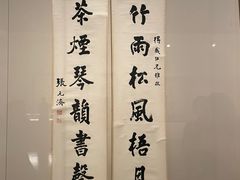 竹雨松風梧月
茶煙琴韻書聲
張元濟